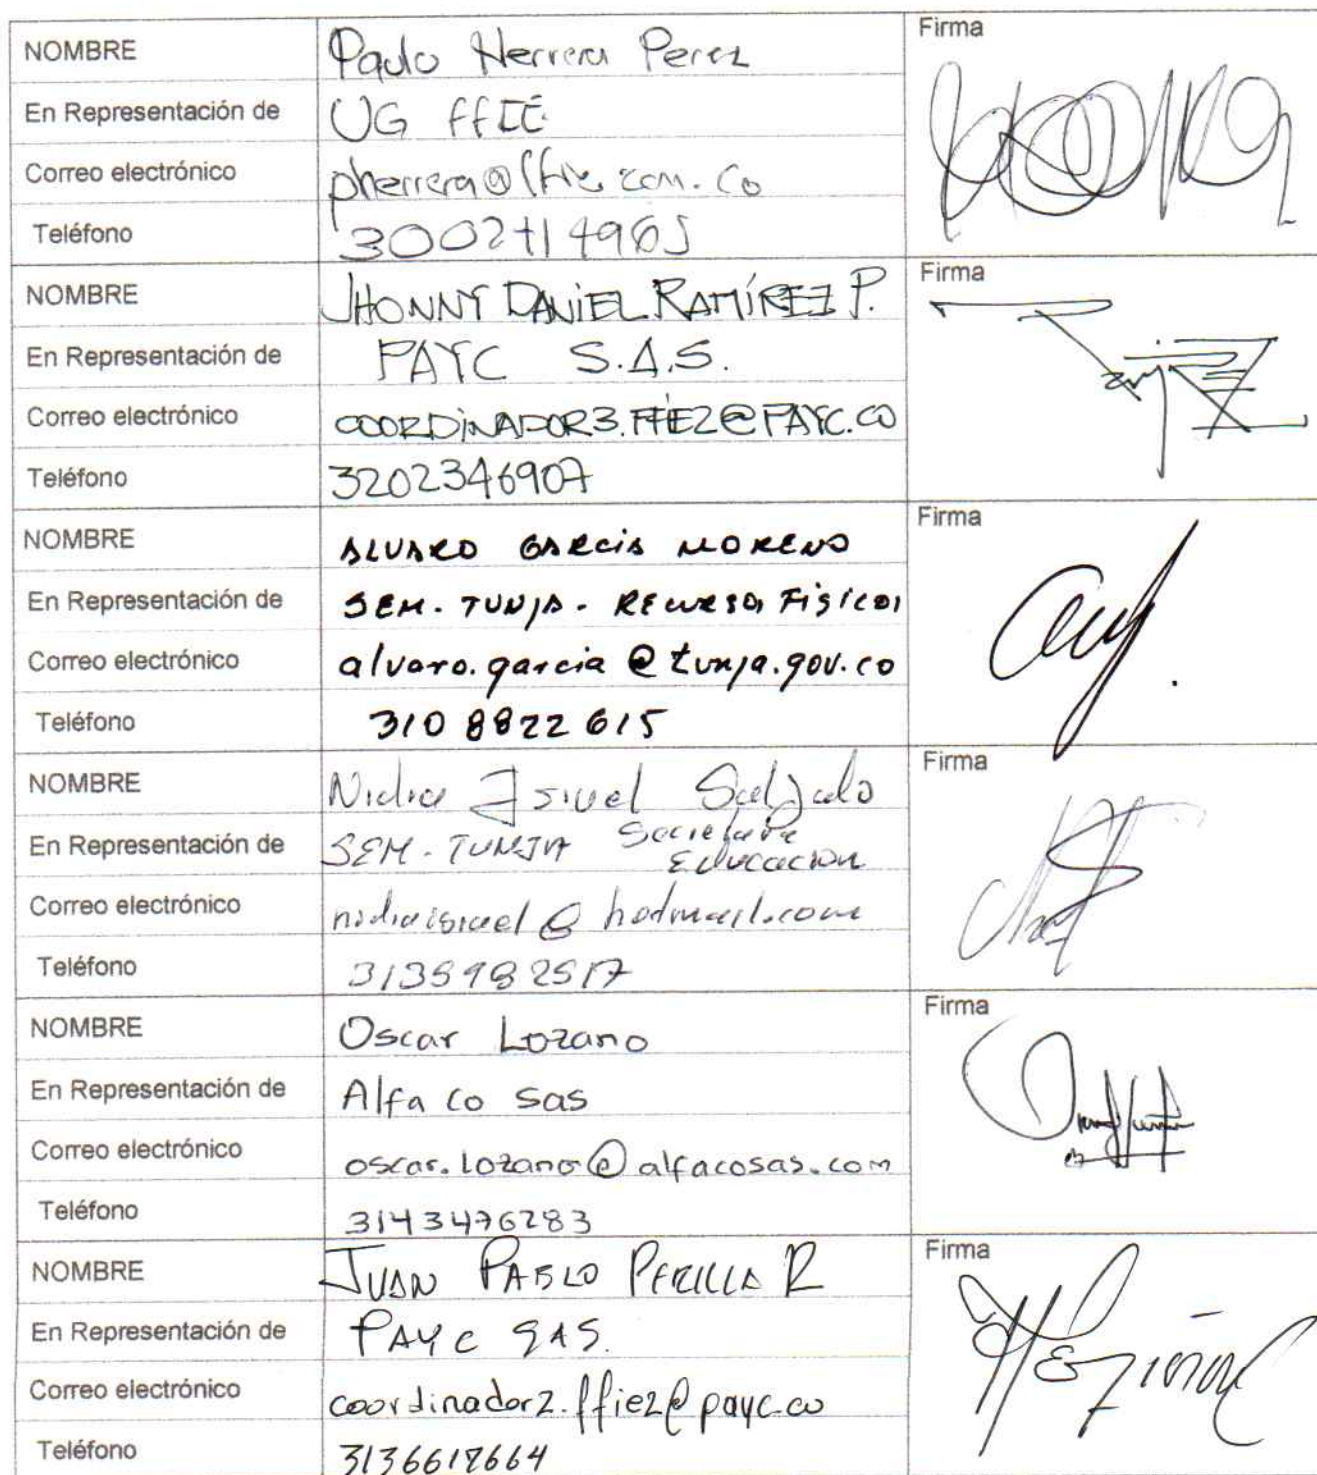 NOMBRE Paulo Herrera Perez Firma
En Representación de UG FFIE
Correo electrónico pherrera@ffie.com.co
Teléfono
NOMBRE JHONNY DANIEL RAMÍREZ P. Firma
En Representación de PAYC S.A.S.
Correo electrónico COORDINADOR3.FFIE2@PAYC.CO
Teléfono 3202346907
NOMBRE ALVARO GARCIA MORENO Firma
En Representación de SEM - TUNJA - RECURSOS FISICOS
Correo electrónico alvaro.garcia@tunja.gov.co
Teléfono 310 8822 615
NOMBRE Nidia Firma
En Representación de SEM - TUNJA Secretaria Educacion
Correo electrónico
Teléfono
NOMBRE Oscar Lozano Firma
En Representación de Alfa co sas
Correo electrónico oscar.lozano@alfacosas.com
Teléfono 3143476283
NOMBRE JUAN PABLO PERILLA R Firma
En Representación de PAYC SAS.
Correo electrónico coordinador2.ffie2@payc.co
Teléfono